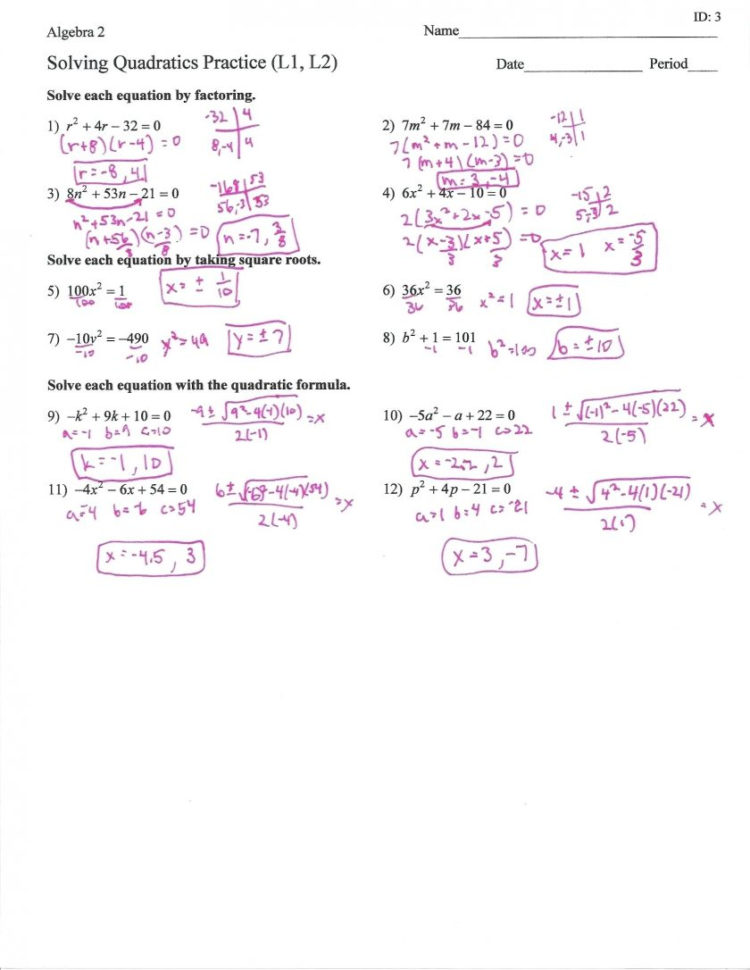 ID: 3
Algebra 2
Name
Solving Quadratics Practice (L1, L2)
Date Period
Solve each equation by factoring.
1) r² + 4r − 32 = 0
-32 | 4
(r+8)(r-4) = 0
8,-4 | 4
r = -8, 4
2) 7m² + 7m − 84 = 0
-12 | 1
7(m² + m - 12) = 0
4,-3 | 1
7(m+4)(m-3) = 0
m = 3, -4
3) 8n² + 53n − 21 = 0
-168 | 53
56,-3 | 53
n² + 53n - 21 = 0
(n+56/8)(n-3/8) = 0
n = -7, 3/8
4) 6x² + 4x − 10 = 0
-15 | 2
5,-3 | 2
2(3x² + 2x - 5) = 0
2(x-3/3)(x+5/3) = 0
x = 1 x = -5/3
Solve each equation by taking square roots.
5) 100x² = 1
100 100
x = ± 1/10
6) 36x² = 36
36 36
x² = 1
x = ±1
7) −10v² = −490
-10 -10
y² = 49
y = ±7
8) b² + 1 = 101
-1 -1
b² = 100
b = ±10
Solve each equation with the quadratic formula.
9) −k² + 9k + 10 = 0
-9 ± √9²-4(-1)(10) = x
2(-1)
a=-1 b=9 c=10
k = -1, 10
10) −5a² − a + 22 = 0
1 ± √(-1)²-4(-5)(22) = x
2(-5)
a=-5 b=-1 c=22
x = -2.2, 2
11) −4x² − 6x + 54 = 0
= x
2(-4)
a=-4 b=-6 c=54
x = -4.5, 3
12) p² + 4p − 21 = 0
-4 ± √4²-4(1)(-21) = x
2(1)
a=1 b=4 c=-21
x = 3, -7